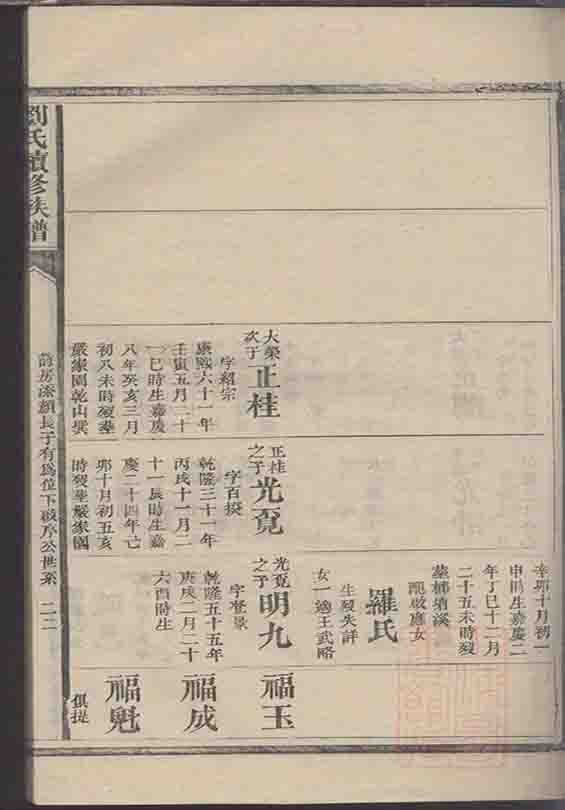 辛卯十月初一
申時生嘉慶二
年丁巳十二月
二十五未時歿
羅氏
生歿失詳
女一適王武略
大榮
次子
正桂
字紹宗
康熙六十一年
壬寅五月二十
一巳時生嘉慶
八年癸亥三月
初八未時歿塟
嚴家園乾山巽
正桂
之子
光寬
乾隆三十一年
丙戌十一月二
十一辰時生嘉
慶二十四年己
卯十月初五亥
時歿塟嚴家園
光寬
之子
明九
乾隆五十五年
庚戌二月二十
六酉時生
福玉
福成
福魁
俱提
劉氏續修族譜